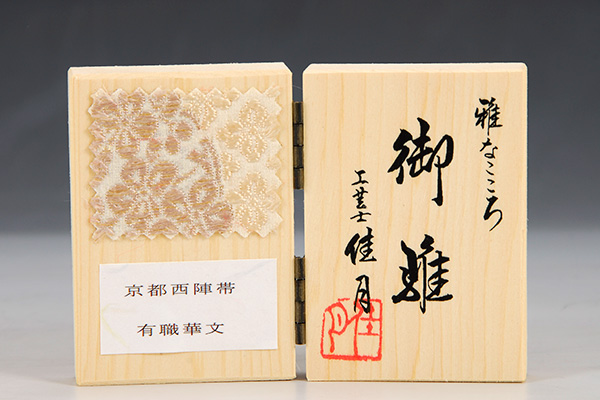 雅なこころ
御雛
工芸士 佳月
佳月
京都西陣帯
有職華文